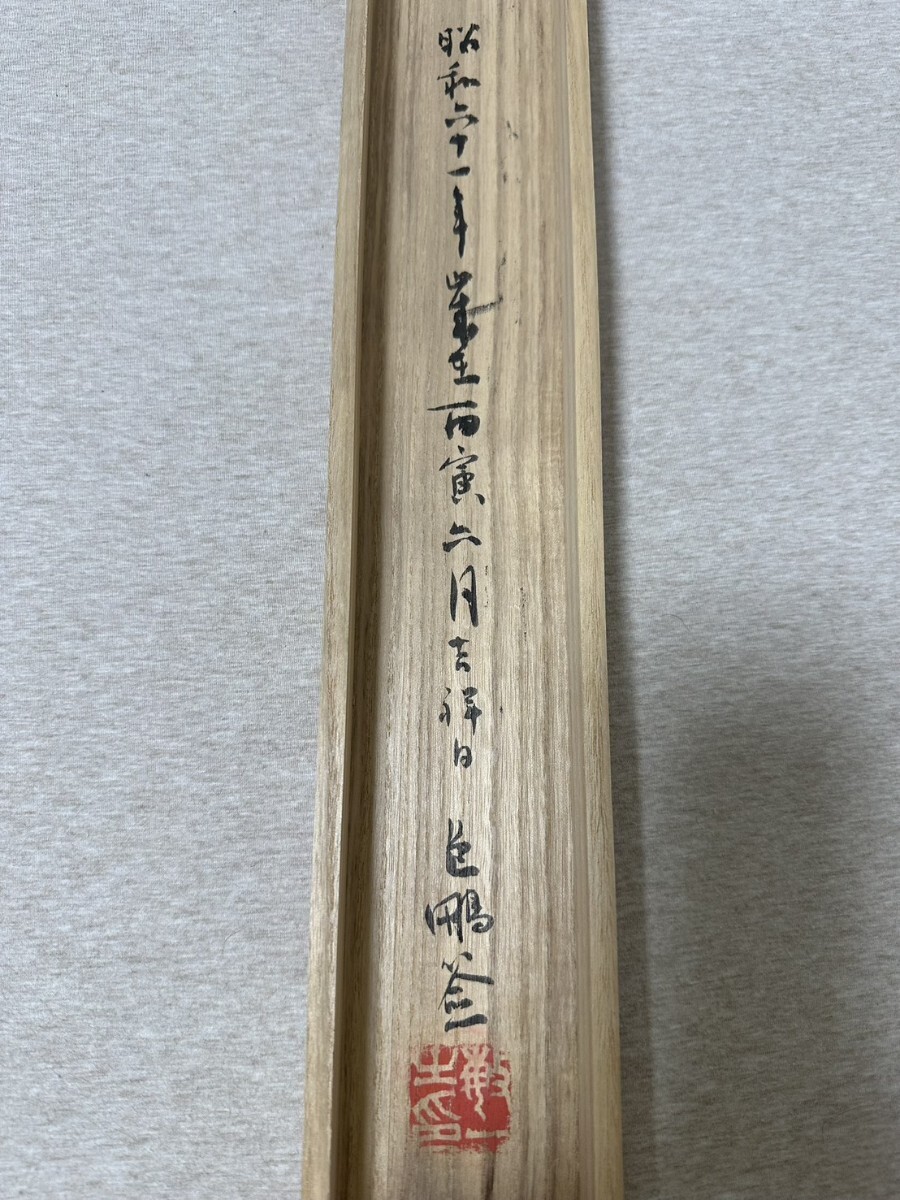 昭和六十一年歳在丙寅六月吉祥日 邑鵬簽